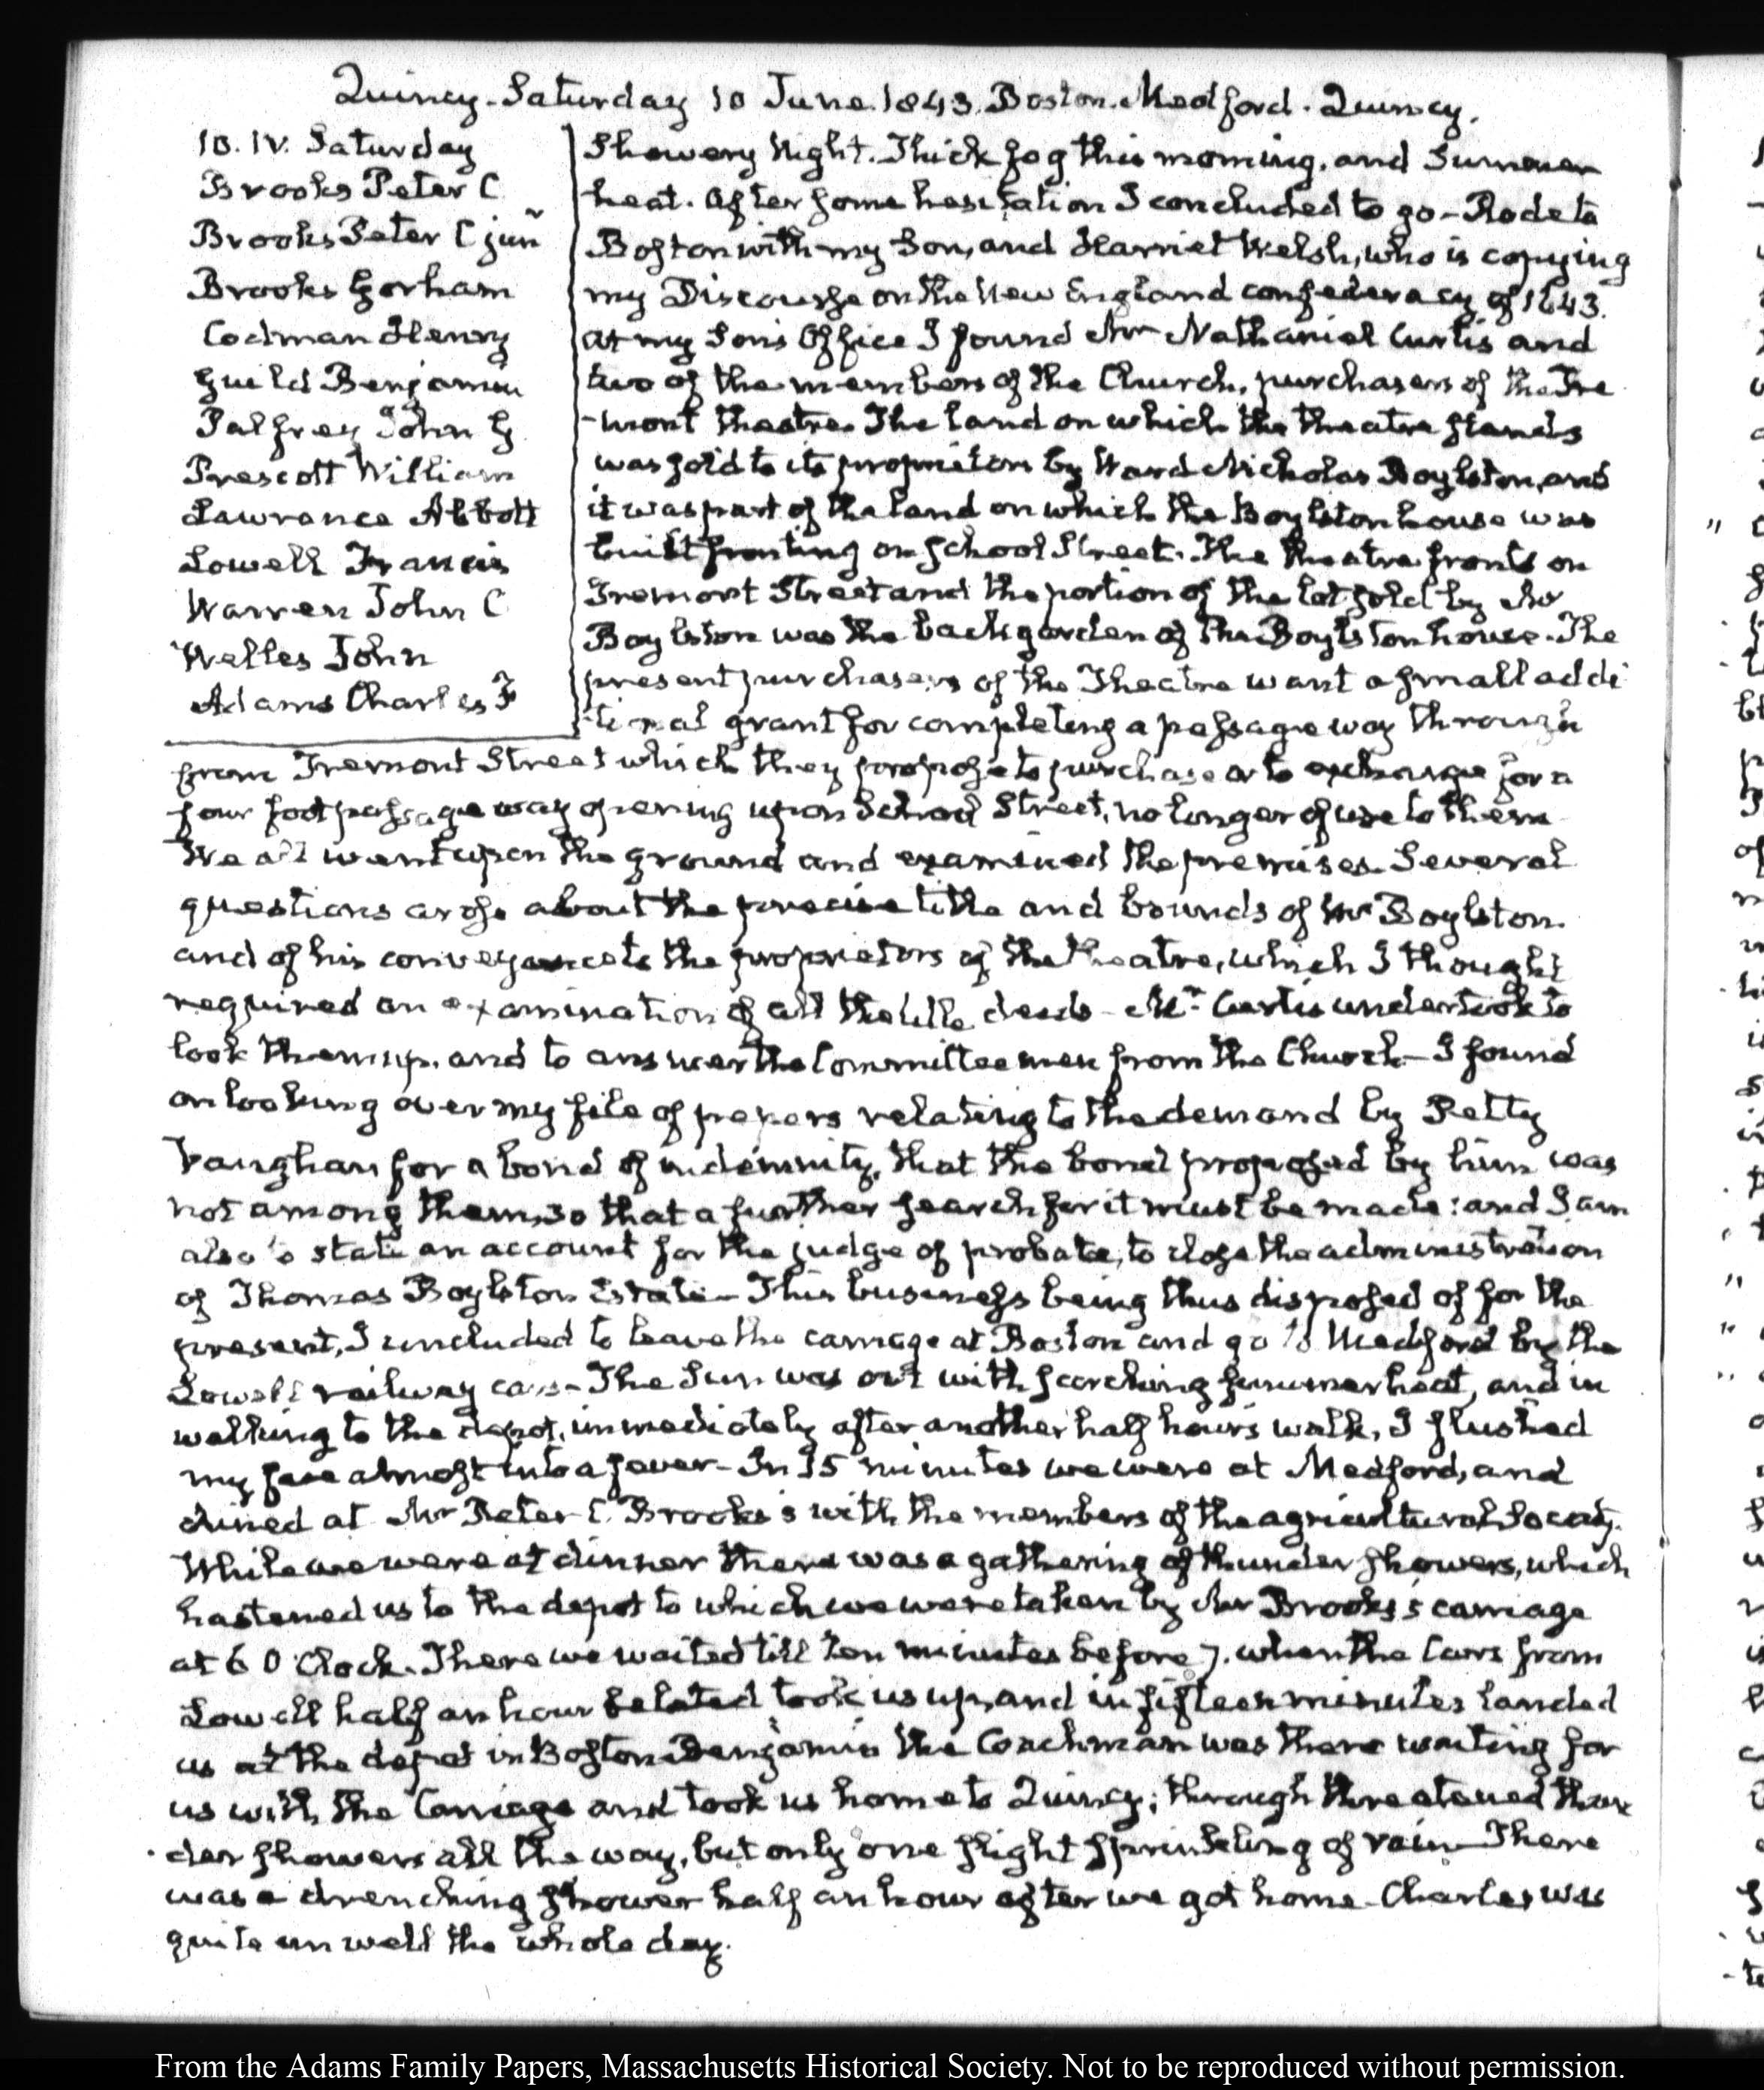 Quincy. Saturday 10 June. 1843. Boston. Medford. Quincy.
10. IV. Saturday
Brooks Peter C
Brooks Peter C junr
Brooks Gorham
Codman Henry
Guild Benjamin
Palfrey John G
Prescott William
Lawrance Abbott
Lowell Francis
Warren John C
Welles John
Adams Charles F
Showery Night. Thick fog this morning, and Summer
heat. After some hesitation I concluded to go – Rode to
Boston with my Son, and Harriet Welsh, who is copying
my Discourse on the New England confederacy of 1643.
at my Son's Office I found Mr Nathaniel Curtis and
two of the members of the Church, purchasers of the Tre
-mont theatre. The land on which the theatre stands
was sold to its proprietors by Ward Nicholas Boylston, and
it was part of the land on which the Boylston house was
built fronting on School Street. The theatre fronts on
Tremont Street and the portion of the lot sold by Mr
Boylston was the back garden of the Boylston house. The
present purchasers of the Theatre want a small addi
-tional grant for completing a passage way through
from Tremont Street which they propose to purchase or to exchange for a
four foot passage way opening upon School Street, no longer of use to them
We all went upon the ground and examined the premises. Several
questions arose about the precise title and bounds of Mr Boylston.
and of his conveyance to the proprietors of the theatre, which I thought
required an examination of all the title deeds – Mr Curtis undertook to
look them up, and to answer the Committee men from the Church – I found
on looking over my file of papers relating to the demand by Petty
Vaughan for a bond of indemnity, that the bond proposed by him was
not among them, so that a further search for it must be made: and I am
also to state an account for the judge of probate, to close the administration
of Thomas Boylston Estate – This business being thus disposed of for the
present, I concluded to leave the carriage at Boston and go to Medford by the
Lowell railway cars – The Sun was out with scorching summer heat, and in
walking to the depot, immediately after another half hour's walk, I flushed
my face almost into a fever – In 15 minutes we were at Medford, and
dined at Mr Peter C. Brooks's with the members of the agricultural Society.
While we were at dinner there was a gathering of thunder showers, which
hastened us to the depot to which we were taken by Mr Brooks's carriage
at 6 O'Clock. There we waited till ten minutes before 7. when the Cars from
Lowell half an hour belated took us up, and in fifteen minutes landed
us at the depot in Boston. Benjamin the Coachman was there waiting for
us with the Carriage and took us home to Quincy; through threatened thun
der showers all the way, but only one slight sprinkling of rain – There
was a drenching shower half an hour after we got home – Charles was
quite unwell the whole day.
From the Adams Family Papers, Massachusetts Historical Society. Not to be reproduced without permission.